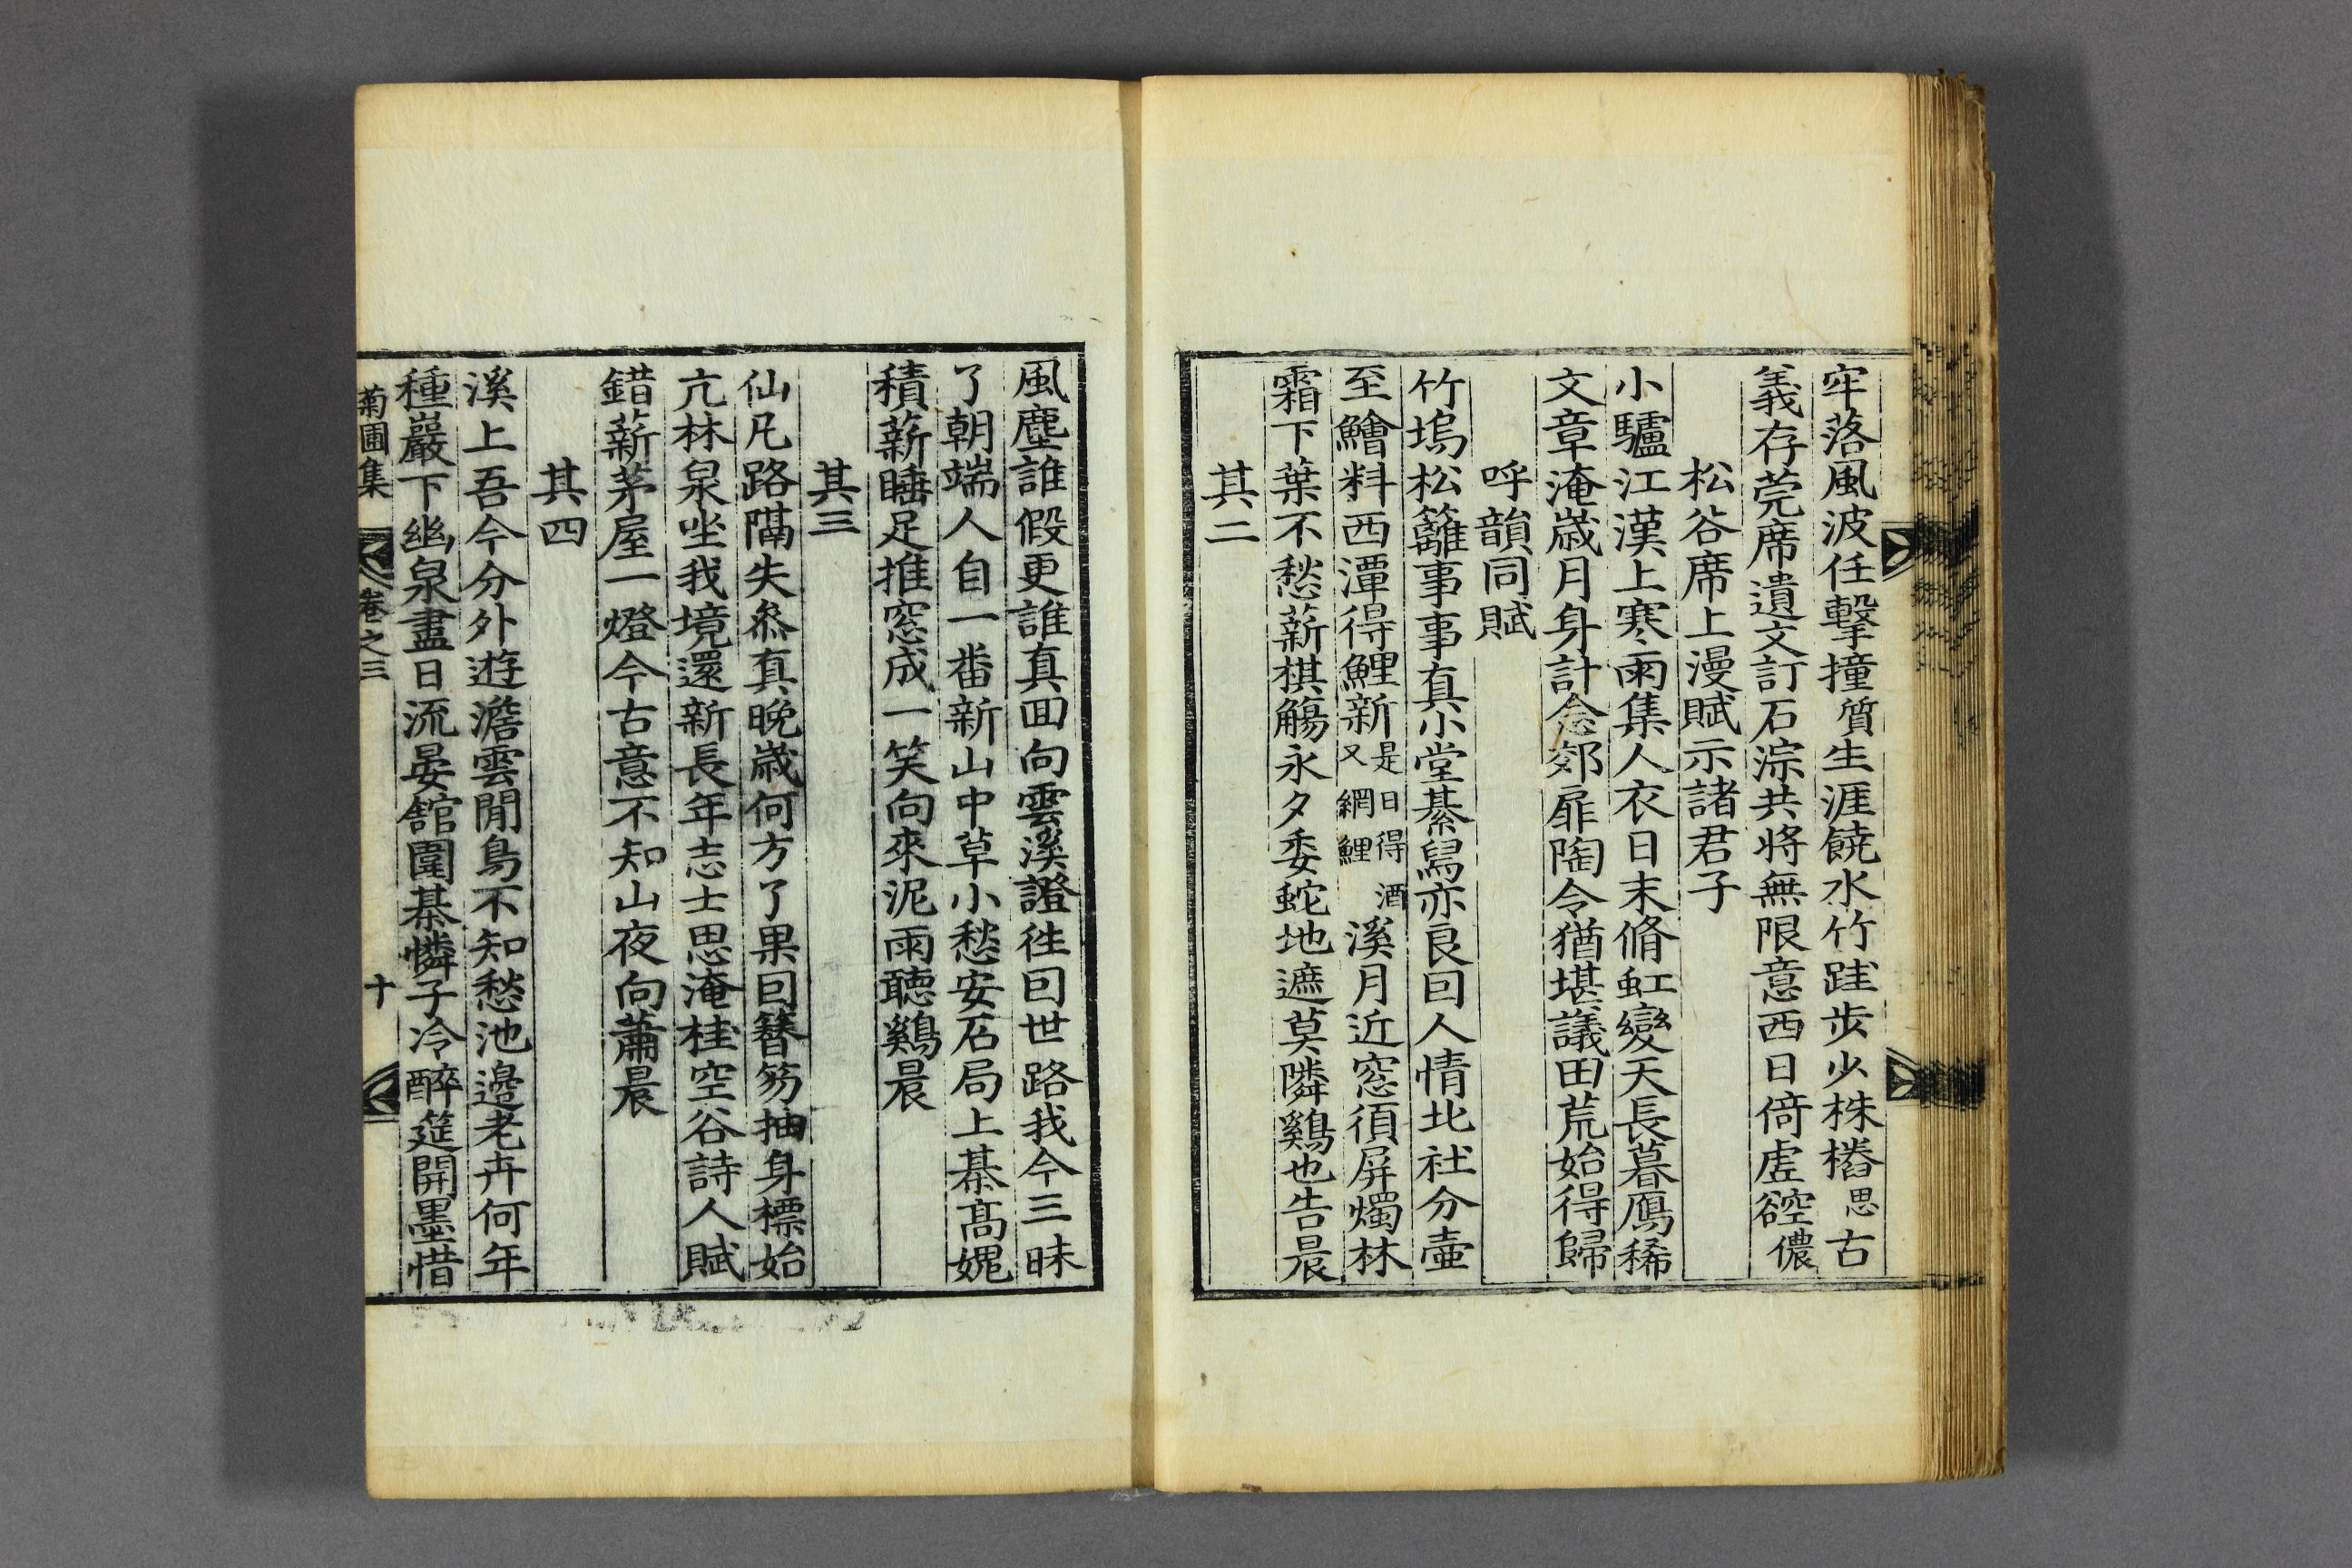 牢落風波任擊撞質生涯饒水竹跬步少株樁思古
義存莞席遺文訂石淙共將無限意西日倚虛谾儂
松谷席上漫賦示諸君子
小驢江漢上寒雨集人衣日末脩虹變天長暮鴈稀
文章淹歲月身計念郊扉陶令猶堪議田荒始得歸
呼韻同賦
竹塢松籬事事真小堂棊舃亦良回人情北社分壺
至鱠料西潭得鯉新是日得酒又網鯉溪月近窓須屏燭林
霜下葉不愁薪棋觴永夕委蛇地遮莫隣鷄也告晨
其二
風塵誰假更誰真回向雲溪證徃回世路我今三昧
了朝端人自一番新山中草小愁安石局上棊高娓
積薪睡足推窓成一笑向來泥雨聽鷄晨
其三
仙凡路隔失叅真晚歲何方了果回簪笏抽身標始
亢林泉坐我境還新長年志士思淹桂空谷詩人賦
錯薪茅屋一燈今古意不知山夜向蕭晨
其四
溪上吾今分外遊澹雲閒鳥不知愁池邊老卉何年
種巖下幽泉盡日流晏舘圍棊憐子冷醉筵開墨惜
菊圃集 卷之三 十